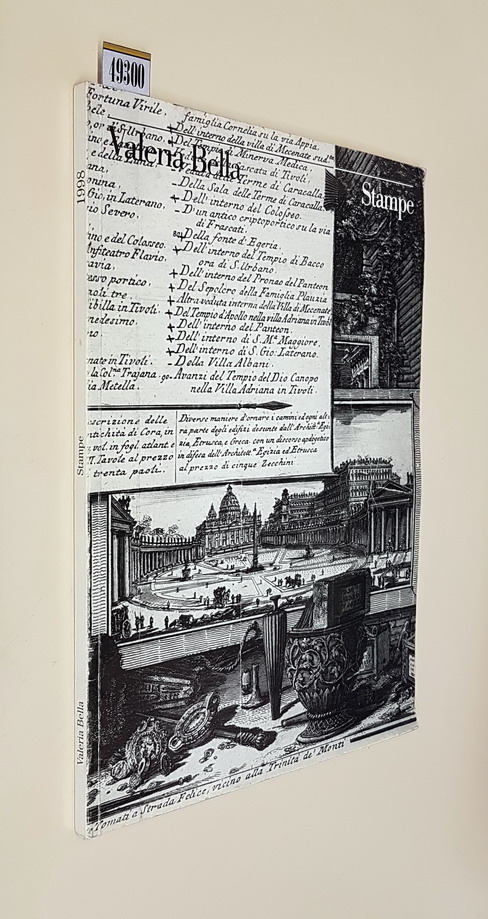 49300
Valeria Bella
Stampe
1998
Stampe
Valeria Bella
Fortuna Virile,
bele
, or. di S. Urbano.
ana,
onina,
Gio. in Laterano,
io Severo,
ino e del Colosseo.
Anfiteatro Flavio,
avia,
esso portico,
noli tre,
ibilla in Tivoli.
nedesimo.
no.
nate in Tivoli.
la Colna Trajana.
ia Metella.
famiglia Cornelia su la via Appia.
Dell'interno della villa di Mecenate sudta
Minerva Medica.
Tivoli.
Terme di Caracalla
Della Sala delle Terme di Caracalla.
Dell'interno del Colosseo.
D'un antico criptoportico su la via
di Frascati.
Della fonte d'Egeria.
Dell'interno del Tempio di Bacco
ora di S. Urbano.
Dell'interno del Pronao del Panteon
Del Sepolcro della Famiglia Plauzia
Altra veduta interna della Villa di Mecenate
Del Tempio d'Apollo nella villa Adriana in Tivoli
Dell'interno del Panteon.
Dell'interno di S. Ma Maggiore.
Dell'interno di S. Gio: Laterano.
Della Villa Albani.
Avanzi del Tempio del Dio Canopo
nella Villa Adriana in Tivoli.
escrizione delle
ntichità di Cora, in
vol. in fogl. atlant. e
Tavole al prezzo
trenta paoli.
Diverse maniere d'ornare i camini ed ogni alt-
ra parte degli edifizi desunte dall'Archit.a Egi-
zia, Etrusca, e Greca con un discorso apologetico
in difesa dell'Architett.a Egizia ed Etrusca
al prezzo di cinque Zecchini
Tomati a Strada Felice, vicino alla Trinità de' Monti